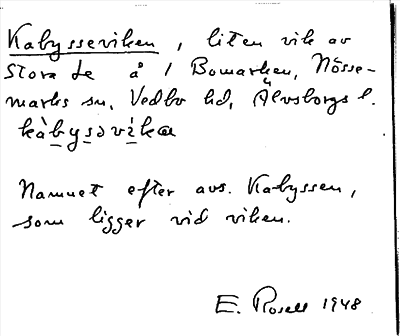 Kabysseviken, liten vik av
Stora Le å / Bomarken, Nösse-
marks sn, Vedbo hd, Älvsborgs l.
kàbysəvíka
Namnet efter avs. Kabyssen,
som ligger vid viken.
E. Rosell 1948